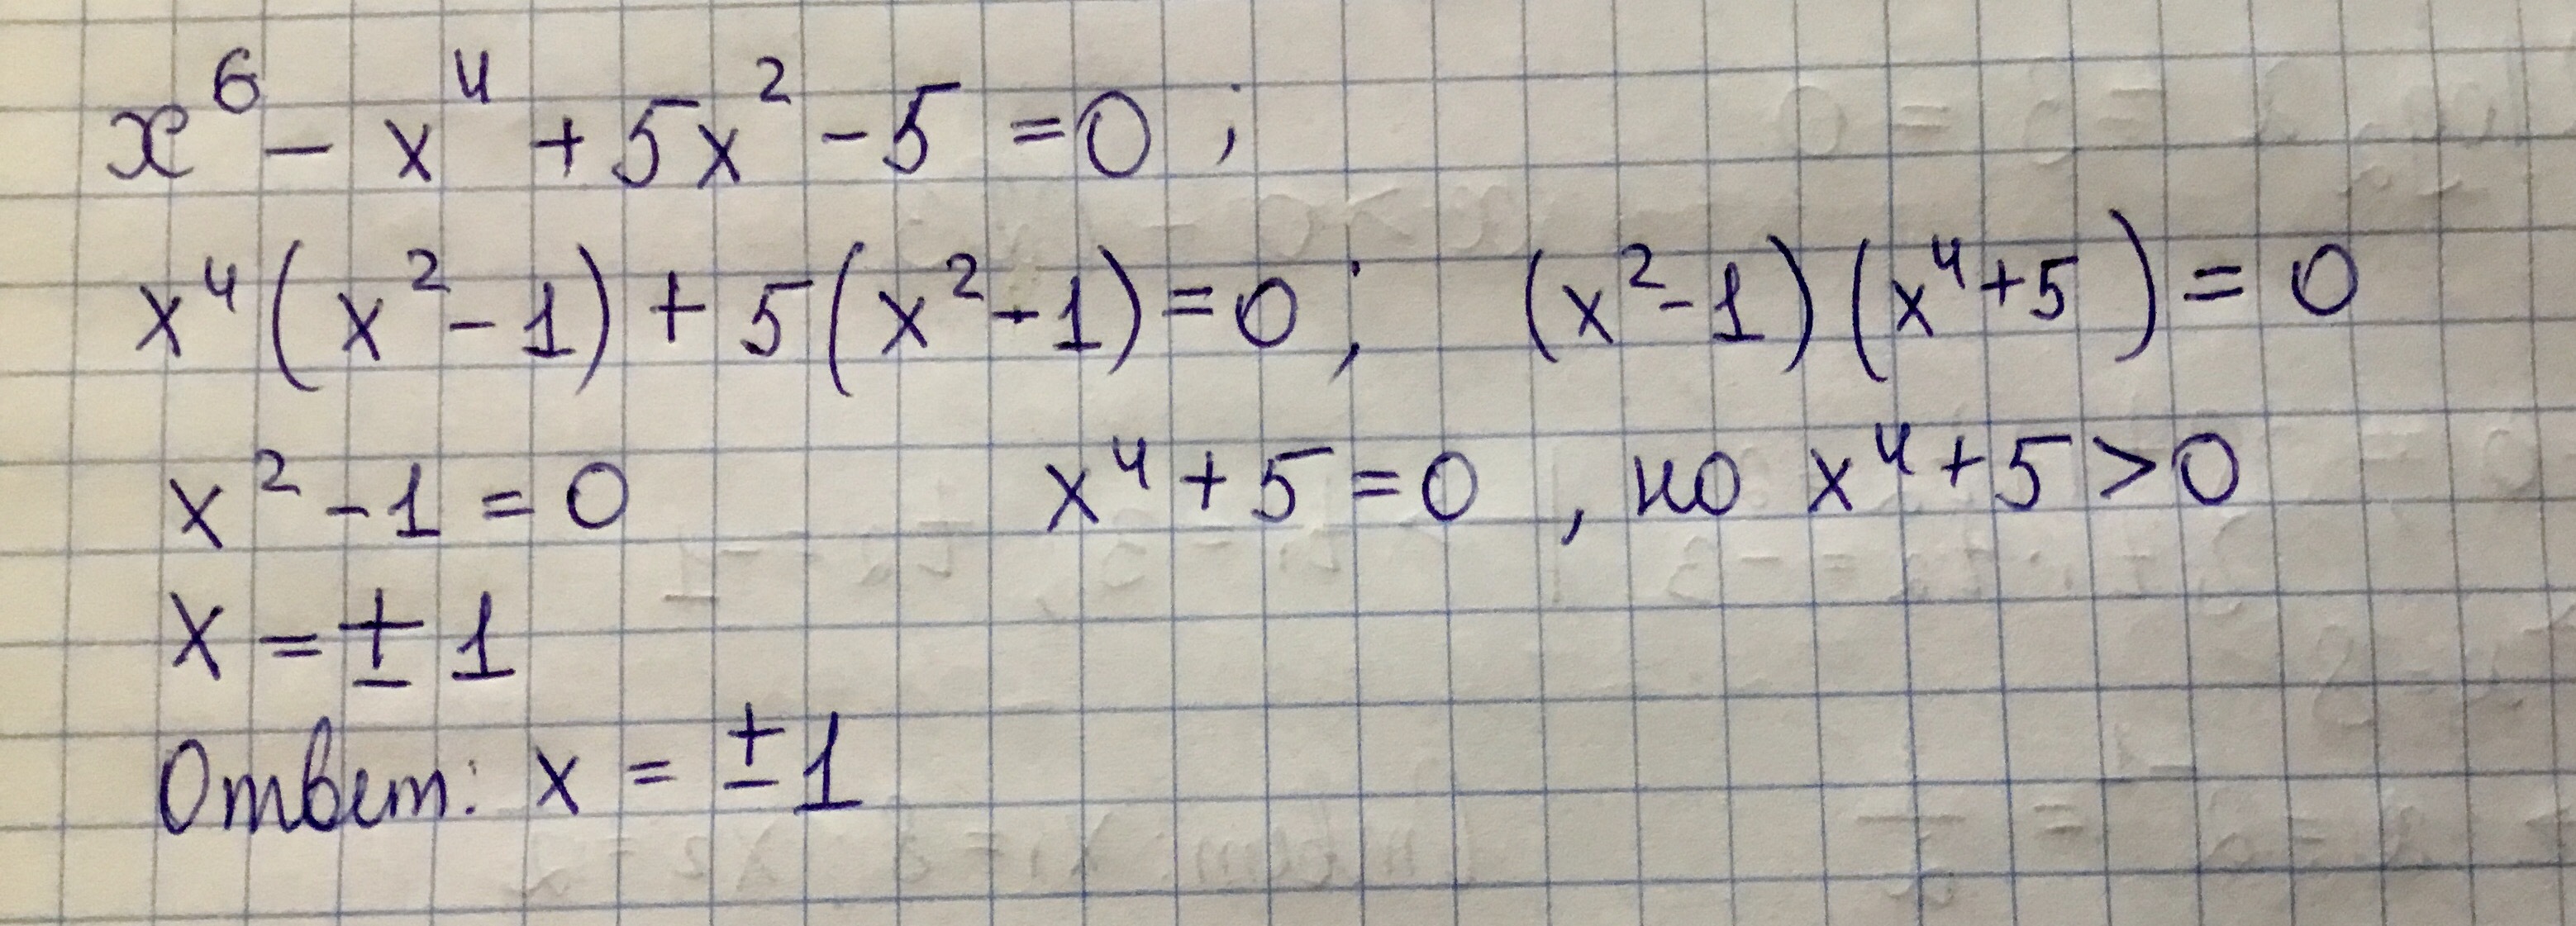 x⁶ - x⁴ + 5x² - 5 = 0 ;
x⁴(x² - 1) + 5(x² - 1) = 0 ; (x² - 1)(x⁴ + 5) = 0
x² - 1 = 0 x⁴ + 5 = 0 , но x⁴ + 5 > 0
x = ± 1
Ответ: x = ± 1